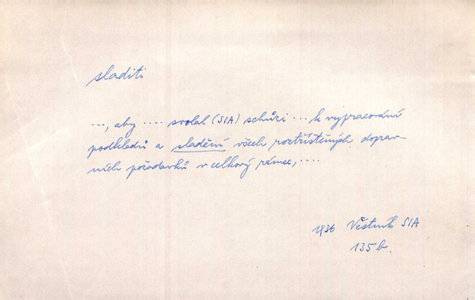 sladiti
..., aby .... svolal (SIA) schůzi ... k vypracování
podkladů a sladění všech roztříštěných doprav-
ních požadavků v celkový rámec, ....
1936 Věstník SIA
135 b.